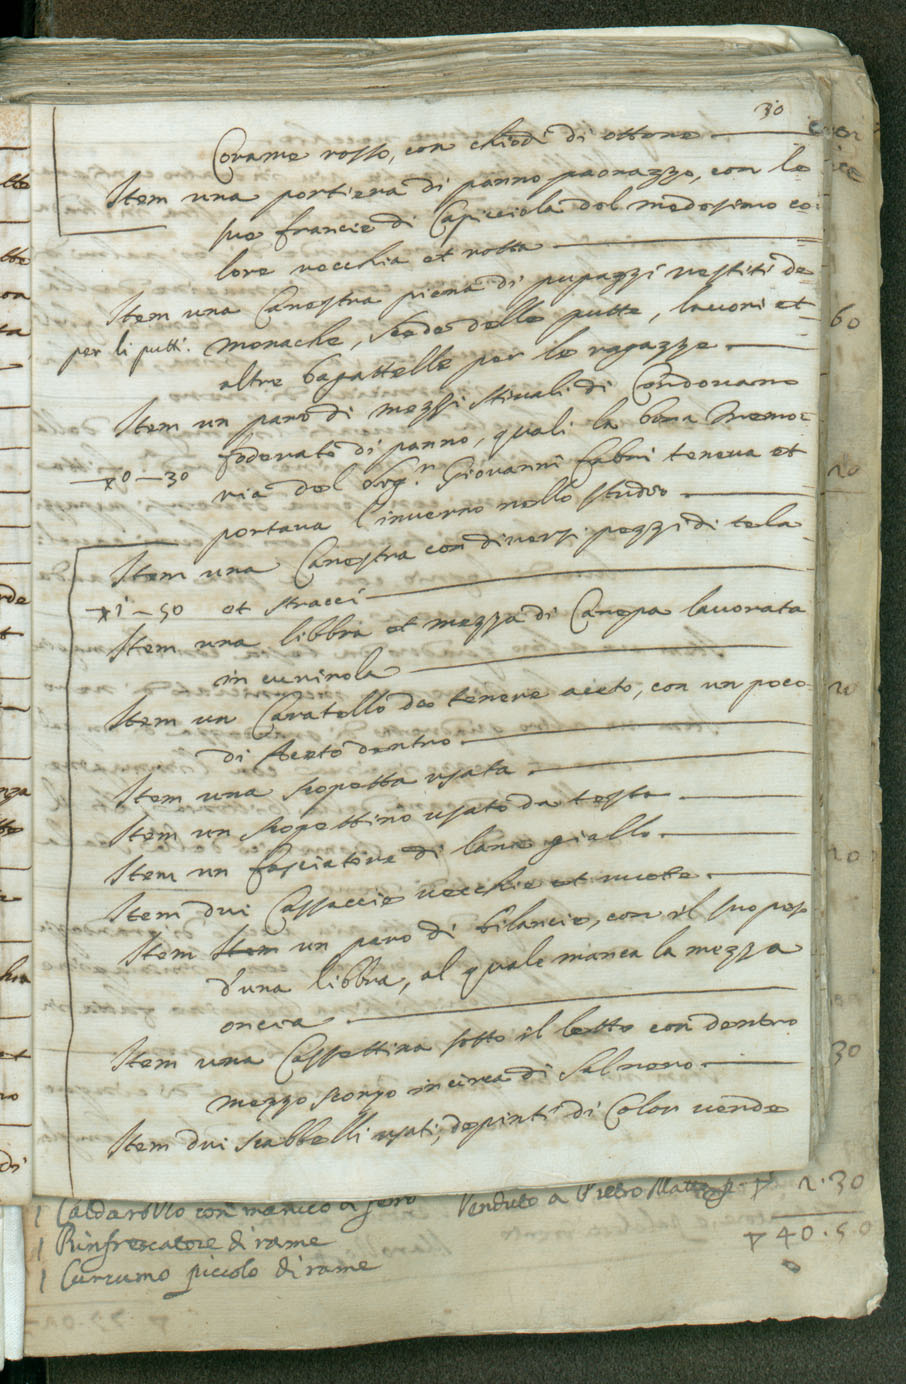 30
Corame rosso, con chiodi di ottone
Item una portiera di panno paonazzo, con le
sue francie di Capicciola del medesimo co=
lore vecchia et rotta
Item una Canestra piena di pupazzi vestiti de
per li putti. monache, Sede delle putte, lavori et
altre bagattelle per le ragazze.
Item un paro di mezzi stivali di Cordovano
foderato di panno, quali la bona memo=
▽0—30 ria del Sig.r Giovanni Fabri teneva et
portava l'inverno nello studio.
Item una Canestra con diversi pezzi di tela
▽1—50 et stracci
Item una libbra et mezza di Canepa lavorata
in curinola
Item un Caratello da tenere aceto, con un poco
di Aceto dentro.
Item una scopetta usata.
Item un scopettino usato da testa
Item un fasciatore di lana giallo.
Item dui Cassaccie vecchie et vuote.
Item Item un paro di bilancie, con il suo peso
d'una libbra, al quale manca la mezza
oncia
Item una Cassettina sotto il letto con dentro
mezzo scorzo incirca di Sal nero.
Item dui scabbelli usati, depinti di Color verde
60
20
20
20
30
1 Caldarozzo con manico di ferro Venduto a Pietro ▽ 2.30
1 Rinfrescatore di rame ▽ 40.50
1 Cucumo piccolo di rame